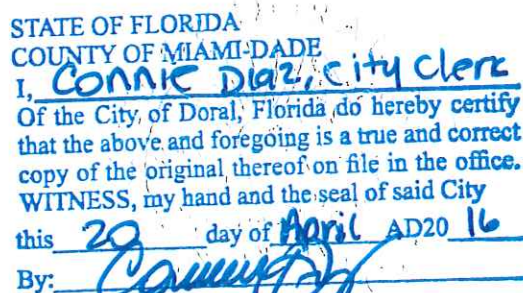 STATE OF FLORIDA
COUNTY OF MIAMI-DADE
I, Connie Diaz, City Clerk
Of the City of Doral, Florida do hereby certify
that the above and foregoing is a true and correct
copy of the original thereof on file in the office.
WITNESS, my hand and the seal of said City
this 20 day of April AD20 16
By: